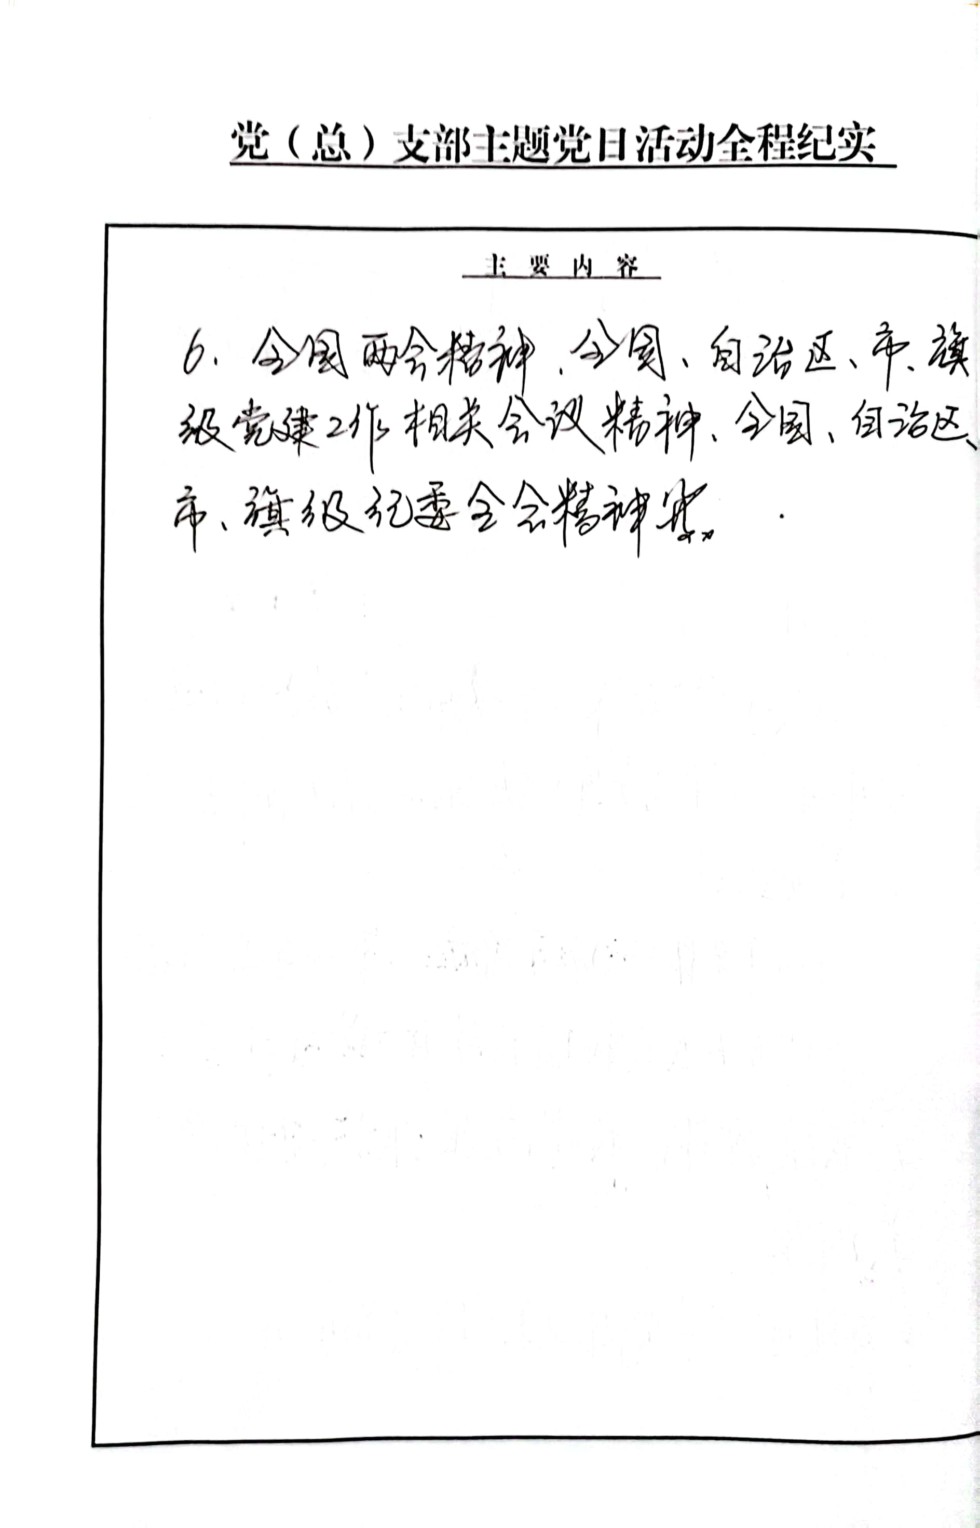 党（总）支部主题党日活动全程纪实
主要内容
6、全国两会精神、全国、自治区、市、旗
级党建工作相关会议精神、全国、自治区、
市、旗级纪委全会精神等。